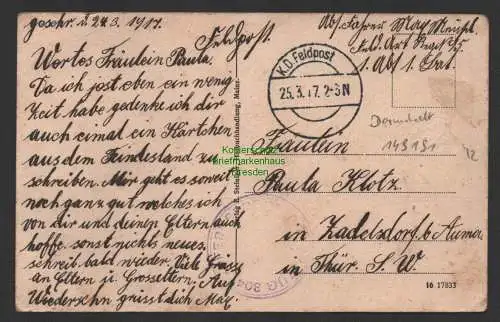 geschr. d. 24.3.1917.
Wertes Fräulein Paula.
Da ich jost eben ein wenig
Zeit habe gedenke ich dir
auch einmal ein Kärtchen
aus dem Feindesland zu
schreiben. Mir geht es soweit
noch ganz gut welches ich
von dir und deinen Eltern auch
hoffe. sonst nichts neues.
schreib bald wieder. Viele Grüsse
an Eltern u. Grosseltern. Auf
Wiedersehn grüsst dich Max.
Feldpost.
Abs. Fahrer Max
Feld Art Regt
1. Abt 1. Bat.
K.D. Feldpost
25.3.17. 2-3N
Darmstadt
149191
42
Kopierschutz
briefmarkenhaus
dresden
Fräulein
Paula Klotz
in Zadelsdorf b. Auma
in Thür. S. W.
16 17833